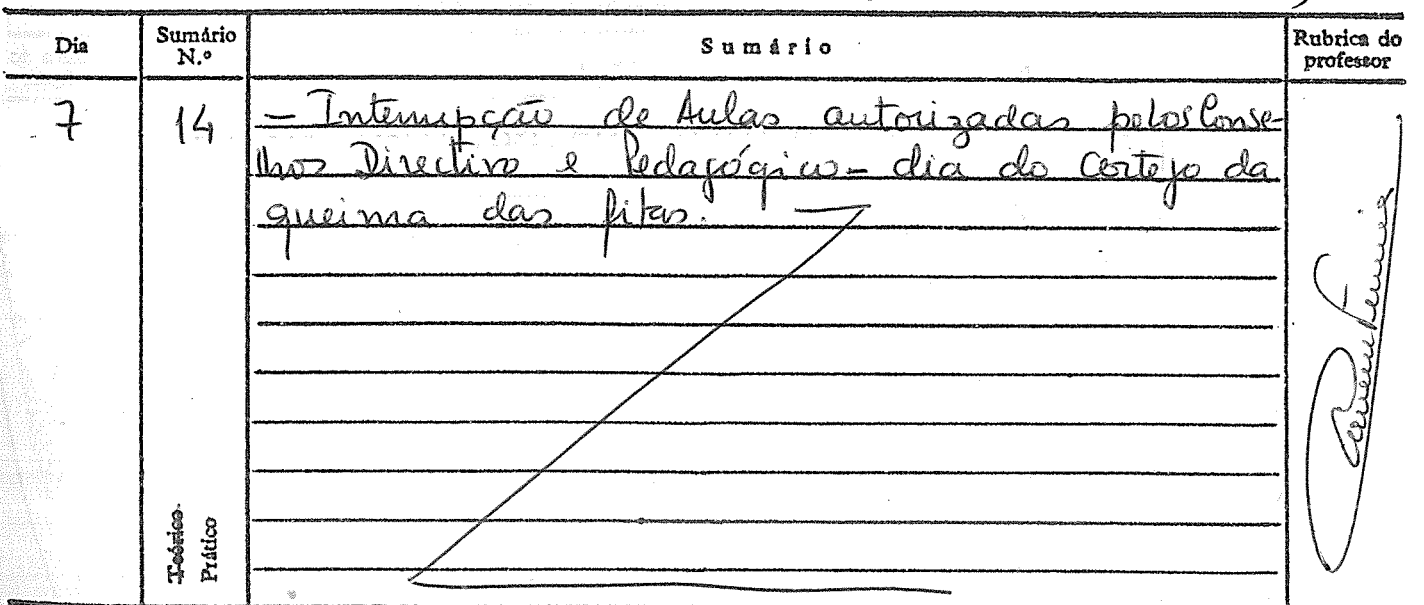 Dia Sumário N.º Sumário Rubrica do professor
7 14 — Interrupção de Aulas autorizadas pelos Conse-
lhos Directivo e Pedagógico – dia do Cortejo da
queima das fitas. —
Teórico
Prático